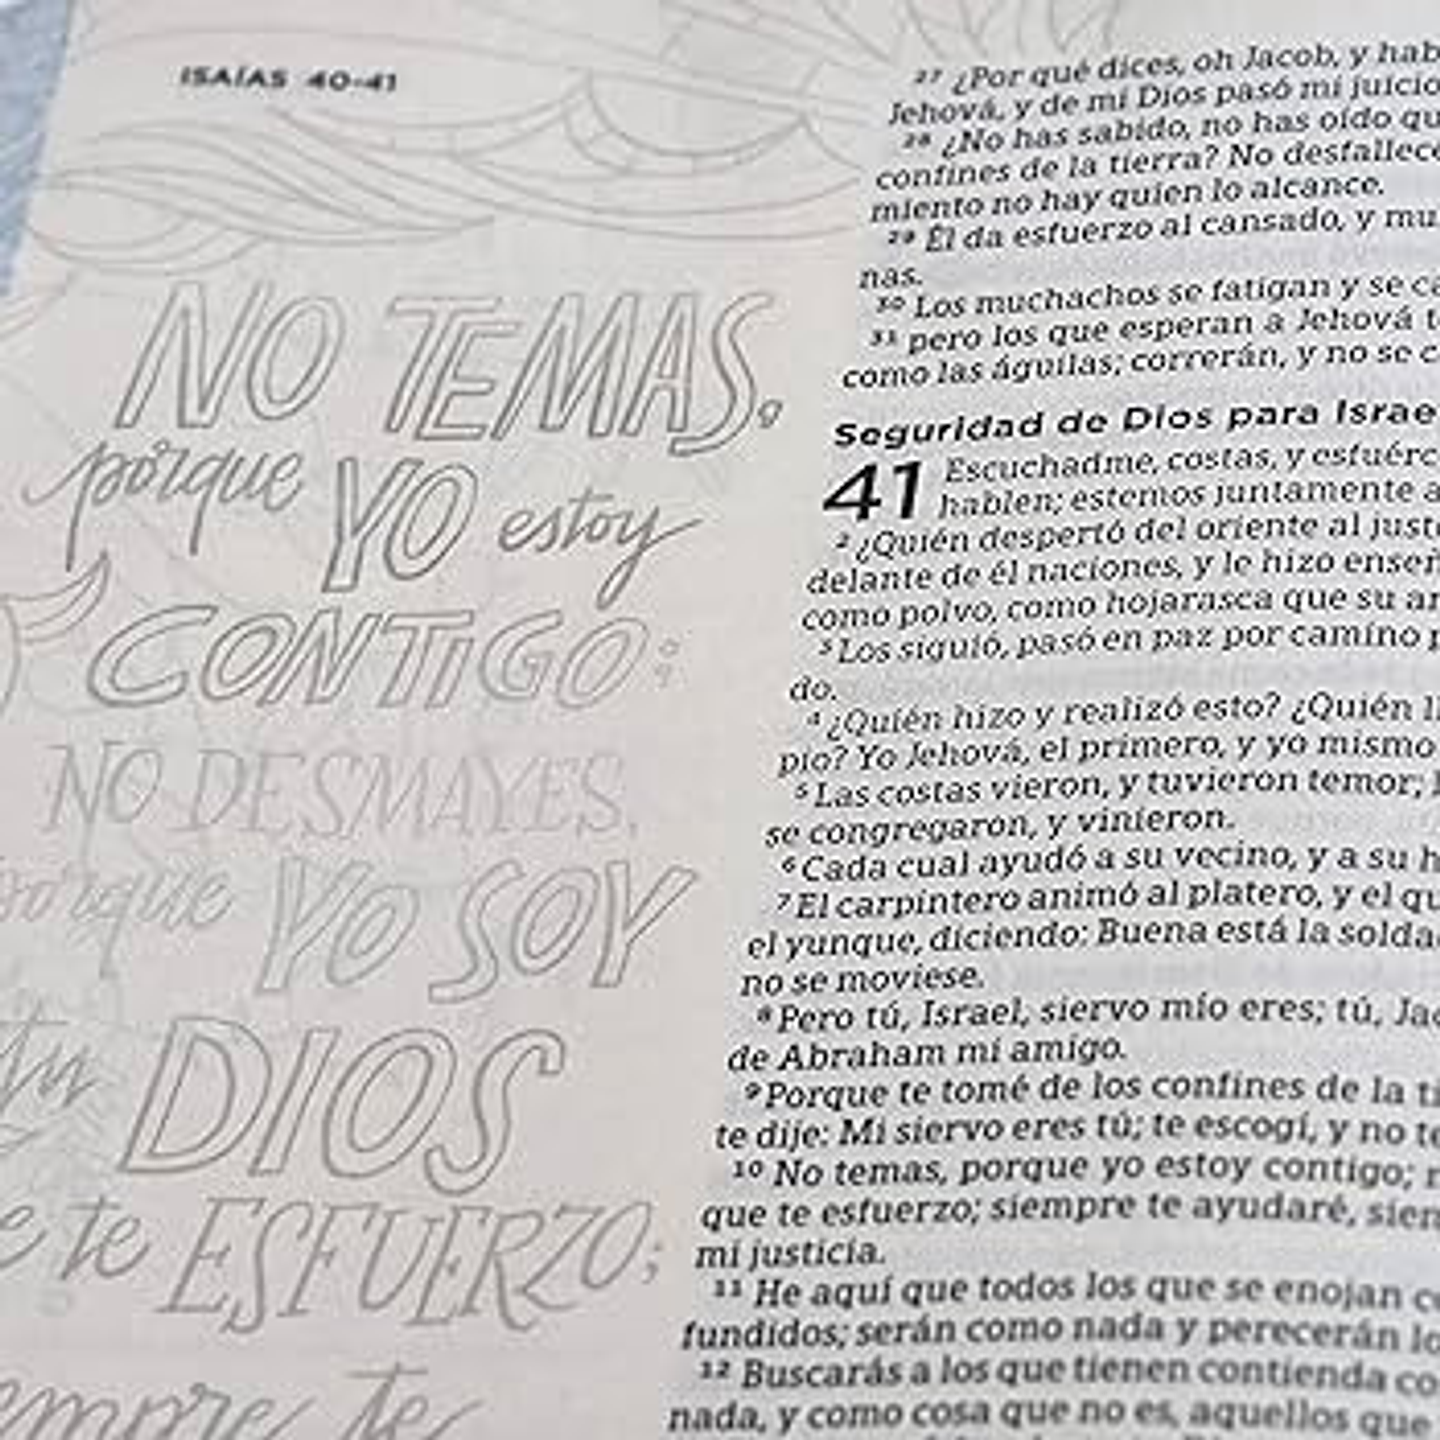 ISAÍAS 40-41
NO TEMAS,
porque YO estoy
CONTIGO:
NO DESMAYES,
porque YO SOY
tu DIOS
te ESFUERZO;
te
27 ¿Por qué dices, oh Jacob, y
Jehová, y de mi Dios pasó mi juicio
28 ¿No has sabido, no has oído
confines de la tierra? No
miento no hay quien lo alcance.
29 Él da esfuerzo al cansado, y
nas.
30 Los muchachos se fatigan y se
31 pero los que esperan a Jehová
como las águilas; correrán, y no se
Seguridad de Dios para
41 Escuchadme, costas, y
hablen; estemos juntamente a
2 ¿Quién despertó del oriente al
delante de él naciones, y le hizo
como polvo, como hojarasca que su
3 Los siguió, pasó en paz por camino
do.
4 ¿Quién hizo y realizó esto? ¿Quién
pio? Yo Jehová, el primero, y yo mismo
5 Las costas vieron, y tuvieron temor;
se congregaron, y vinieron.
6 Cada cual ayudó a su vecino, y a su
7 El carpintero animó al platero, y el
el yunque, diciendo: Buena está la
no se moviese.
8 Pero tú, Israel, siervo mío eres; tú,
de Abraham mi amigo.
9 Porque te tomé de los confines de la
te dije: Mi siervo eres tú; te escogí, y no
10 No temas, porque yo estoy contigo;
que te esfuerzo; siempre te ayudaré,
mi justicia.
11 He aquí que todos los que se enojan
fundidos; serán como nada y perecerán
12 Buscarás a los que tienen contienda
nada, y como cosa que no es, aquellos que